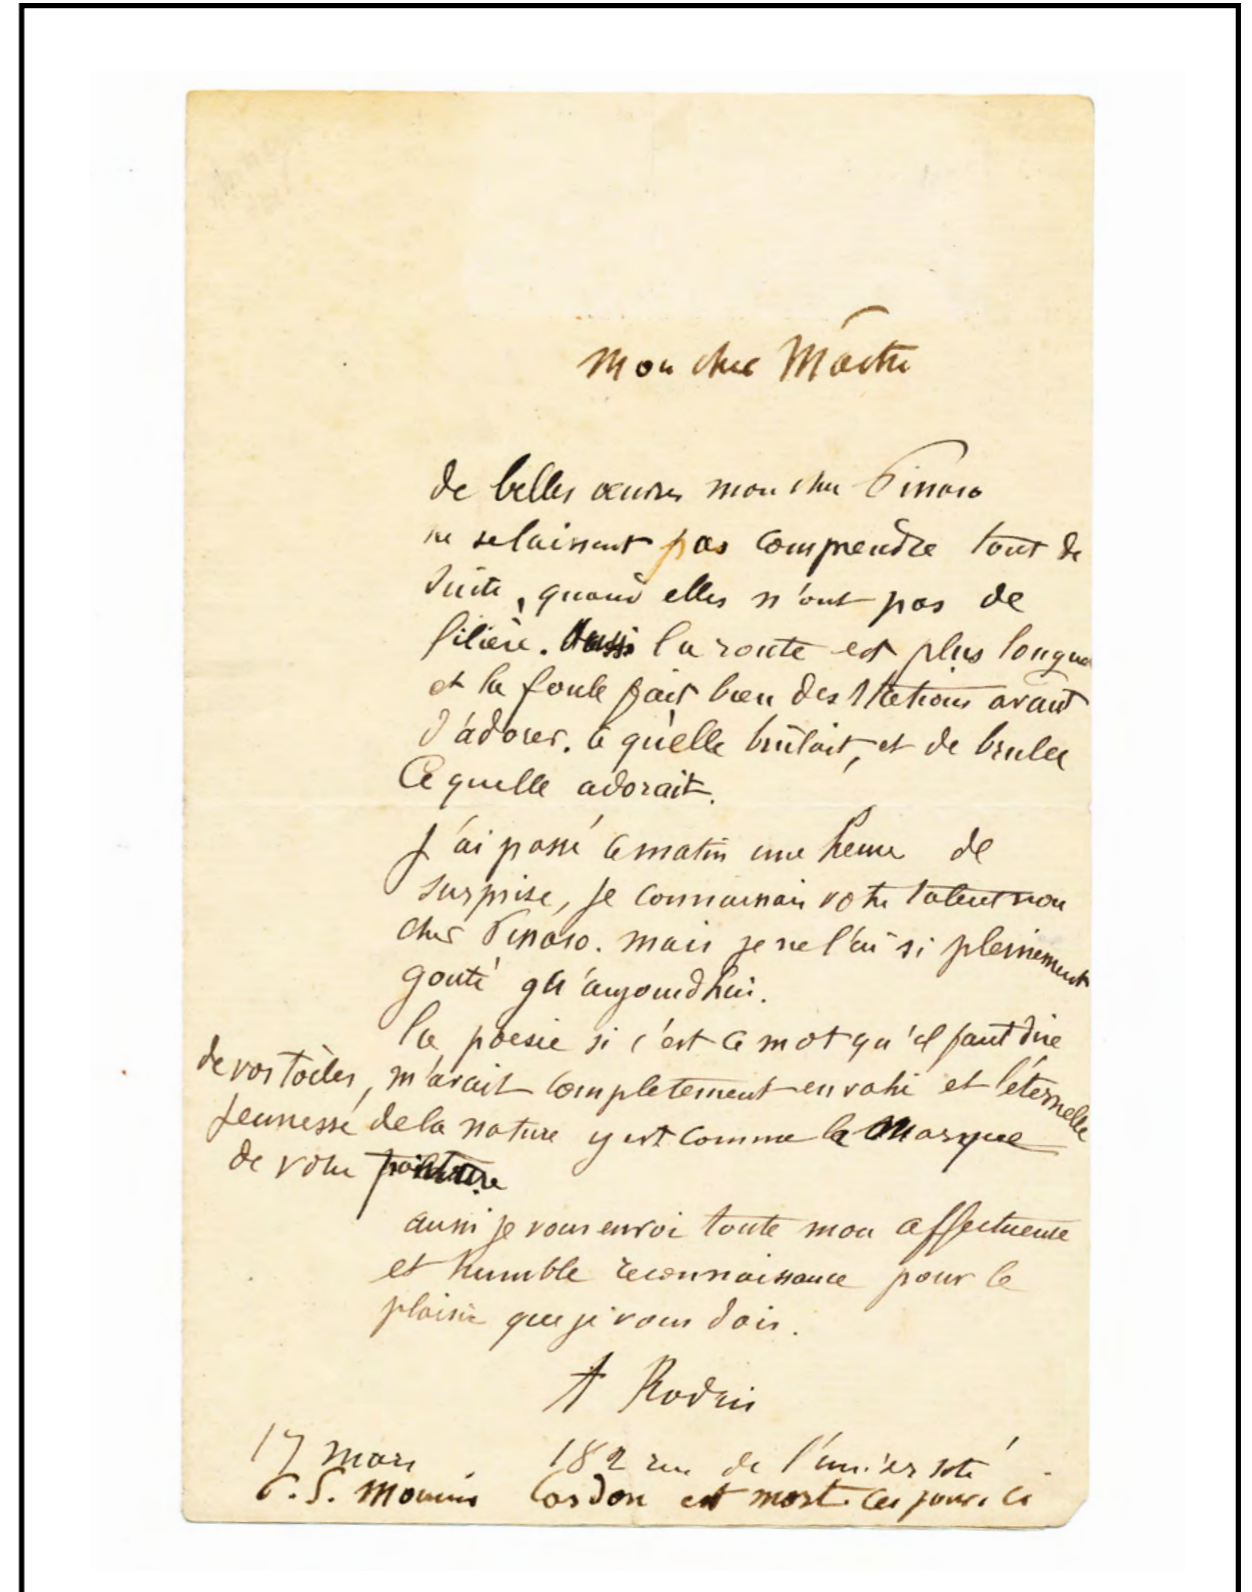 Mon cher Maître
de belles œuvres mon cher Pissaro
ne se laissent pas comprendre tout de
suite, quand elles n'ont pas de
filière. Aussi la route est plus longue
et la foule fait bien des stations avant
d'adorer. ce qu'elle brûlait, et de bruler
Ce quelle adorait.
J'ai passé ce matin une heure de
surprise, je connaissais votre talent mon
cher Pissaro. mais je ne l'ai si pleinement
gouté qu'aujourdhui.
la poesie si c'est ce mot qu'il faut dire
de vos toiles, m'avait completement envahi et l'éternelle
jeunesse de la nature y est comme la Marque
de votre peinture
aussi je vous envoi toute mon affectueuse
et humble reconnaissance pour le
plaisir que je vous dois.
A Rodin
17 mars 182 rue de l'université
P.S. Cardon est mort ces jours ci